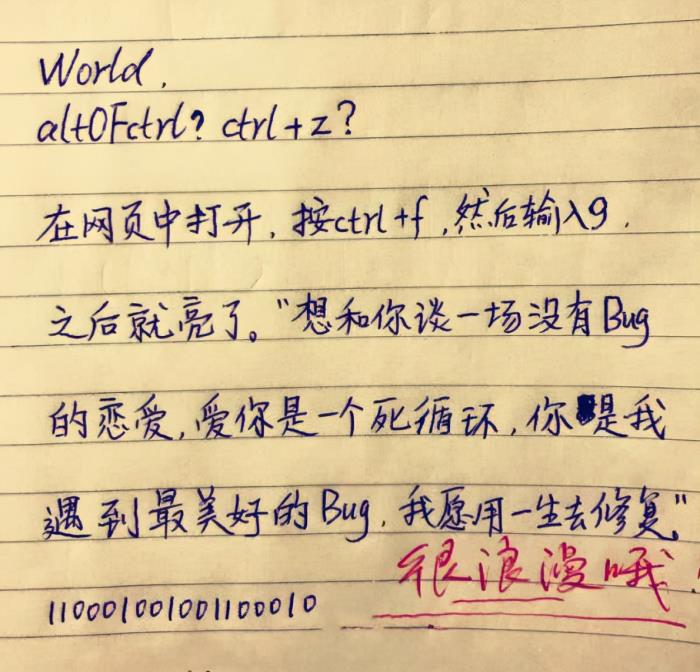 World,
alt0Fctrl? ctrl+z?
在网页中打开,按ctrl+f,然后输入9.
之后就亮了。"想和你谈一场没有Bug
的恋爱,爱你是一个死循环,你是我
遇到最美好的Bug,我愿用一生去修复"
很浪漫哦!
110001001001100010